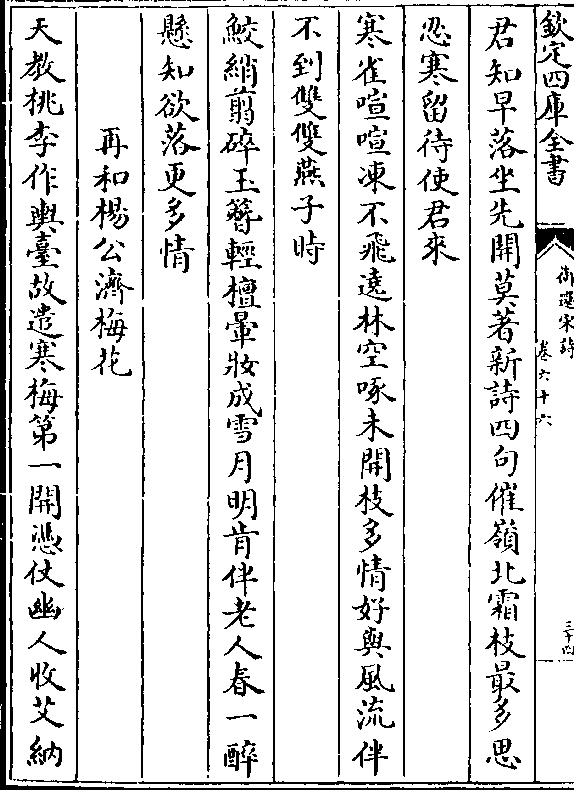 欽定四庫全書
御選宋詩
卷六十六
三十四
君知早落坐先開莫著新詩四句催嶺北霜枝最多思
忍寒留待使君來
寒雀喧喧凍不飛遶林空啄未開枝多情好與風流伴
不到雙雙燕子時
鮫綃翦碎玉簪輕檀暈妝成雪月明肯伴老人春一醉
懸知欲落更多情
再和楊公濟梅花
天教桃李作輿臺故遣寒梅第一開憑仗幽人收艾納